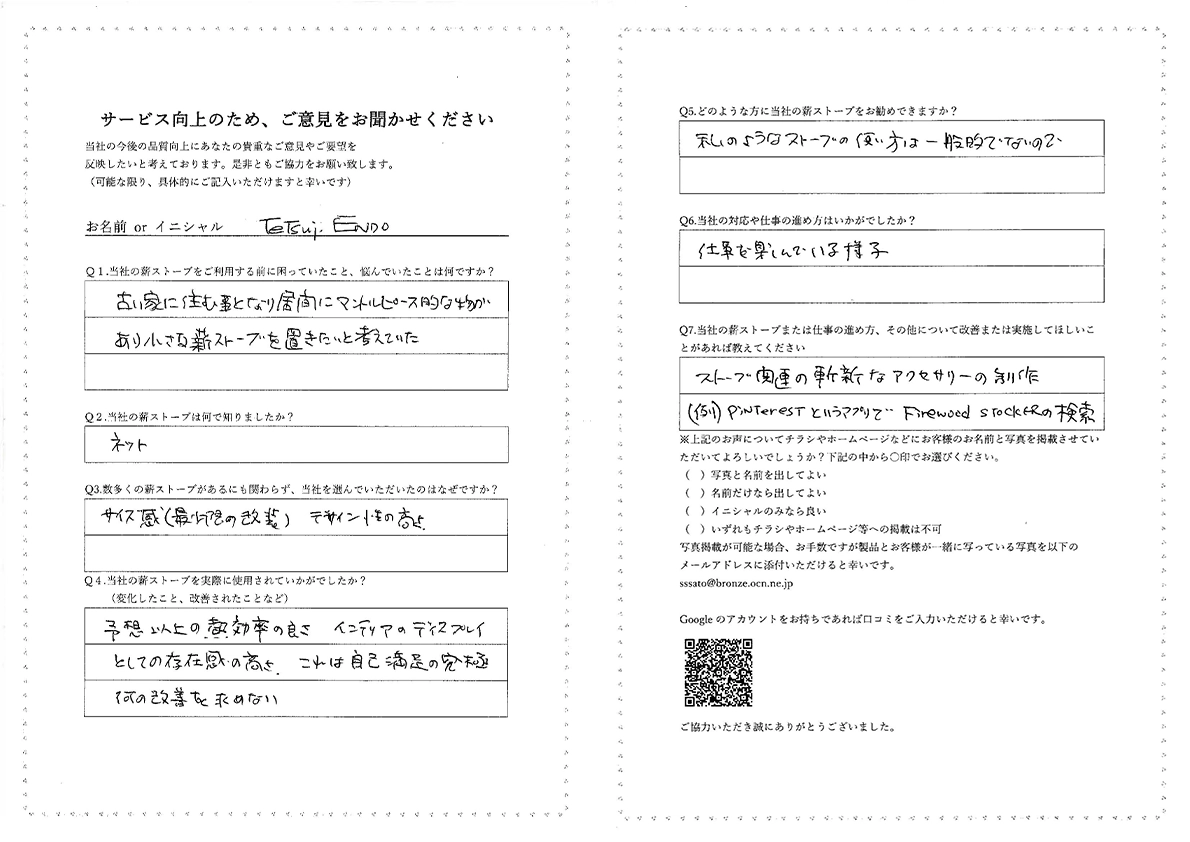 サービス向上のため、ご意見をお聞かせください
当社の今後の品質向上にあなたの貴重なご意見やご要望を
反映したいと考えております。是非ともご協力をお願い致します。
（可能な限り、具体的にご記入いただけますと幸いです）
お名前 or イニシャル Tetsuji ENDO
Q１.当社の薪ストーブをご利用する前に困っていたこと、悩んでいたことは何ですか？
古い家に住む事となり居間にマントルピース的な物が
あり小さな薪ストーブを置きたいと考えていた
Q２.当社の薪ストーブは何で知りましたか？
ネット
Q3.数多くの薪ストーブがあるにも関わらず、当社を選んでいただいたのはなぜですか？
サイズ感（最小限の改装） デザイン性の高さ
Q４.当社の薪ストーブを実際に使用されていかがでしたか？
（変化したこと、改善されたことなど）
予想以上の熱効率の良さ インテリアのディスプレイ
としての存在感の高さ これは自己満足の究極
何の改善も求めない
Q5.どのような方に当社の薪ストーブをお勧めできますか？
私のようなストーブの使い方は一般的でないので
Q6.当社の対応や仕事の進め方はいかがでしたか？
仕事を楽しんでいる様子
Q7.当社の薪ストーブまたは仕事の進め方、その他について改善または実施してほしいこ
とがあれば教えてください
ストーブ関連の斬新なアクセサリーの制作
（例）PinteresTというアプリで Firewood stockerの検索
※上記のお声についてチラシやホームページなどにお客様のお名前と写真を掲載させてい
ただいてよろしいでしょうか？下記の中から〇印でお選びください。
（ ）写真と名前を出してよい
（ ）名前だけなら出してよい
（ ）イニシャルのみなら良い
（ ）いずれもチラシやホームページ等への掲載は不可
写真掲載が可能な場合、お手数ですが製品とお客様が一緒に写っている写真を以下の
メールアドレスに添付いただけると幸いです。
sssato@bronze.ocn.ne.jp
Google のアカウントをお持ちであれば口コミをご入力いただけると幸いです。
ご協力いただき誠にありがとうございました。